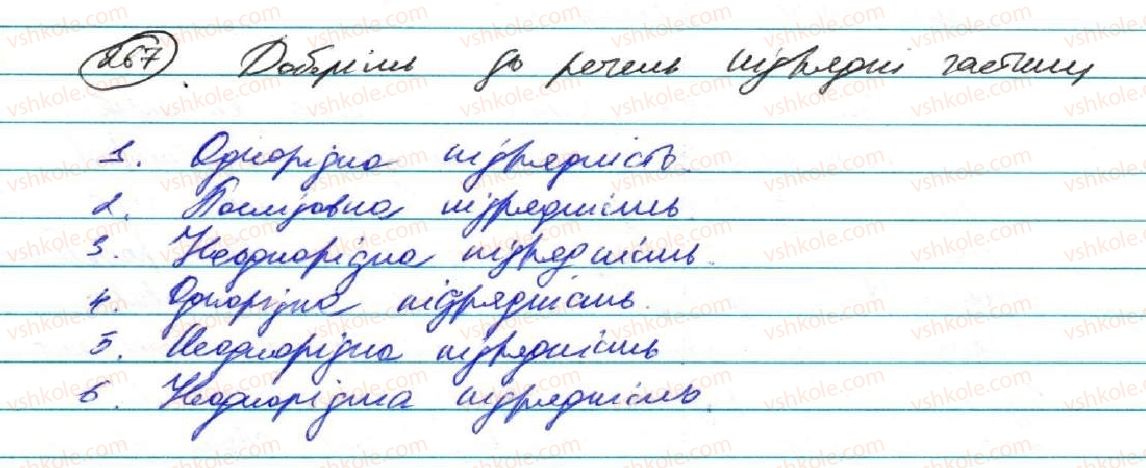 267. Доберіть до речень підрядні частини
1. Однорідна підрядність.
2. Послідовна підрядність.
3. Неоднорідна підрядність.
4. Однорідна підрядність.
5. Неоднорідна підрядність
6. Неоднорідна підрядність.